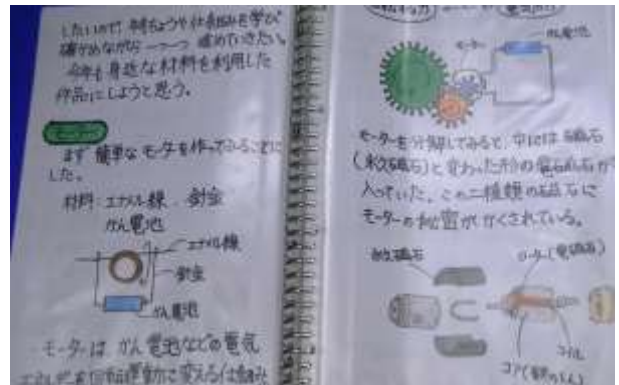 したいので、特ちょうや仕組みを学び
確かめながら一つ一つ進めていきたい。
今年も身近な材料を利用した
作品にしようと思う。
まず簡単なモーターを作ってみることに
した。
材料:エナメル線、針金
かん電池
エナメル線
針金
かん電池
モーターは、かん電池などの電気
エネルギーを回転運動に変える仕組み
モーター
かん電池
モーターを分解してみると、中には磁石
(永久磁石)と変わった形の電磁石が
入っていた。この二種類の磁石に
モーターの秘密がかくされている。
永久磁石
ローター(電磁石)
コイル
コア(鉄のしん)